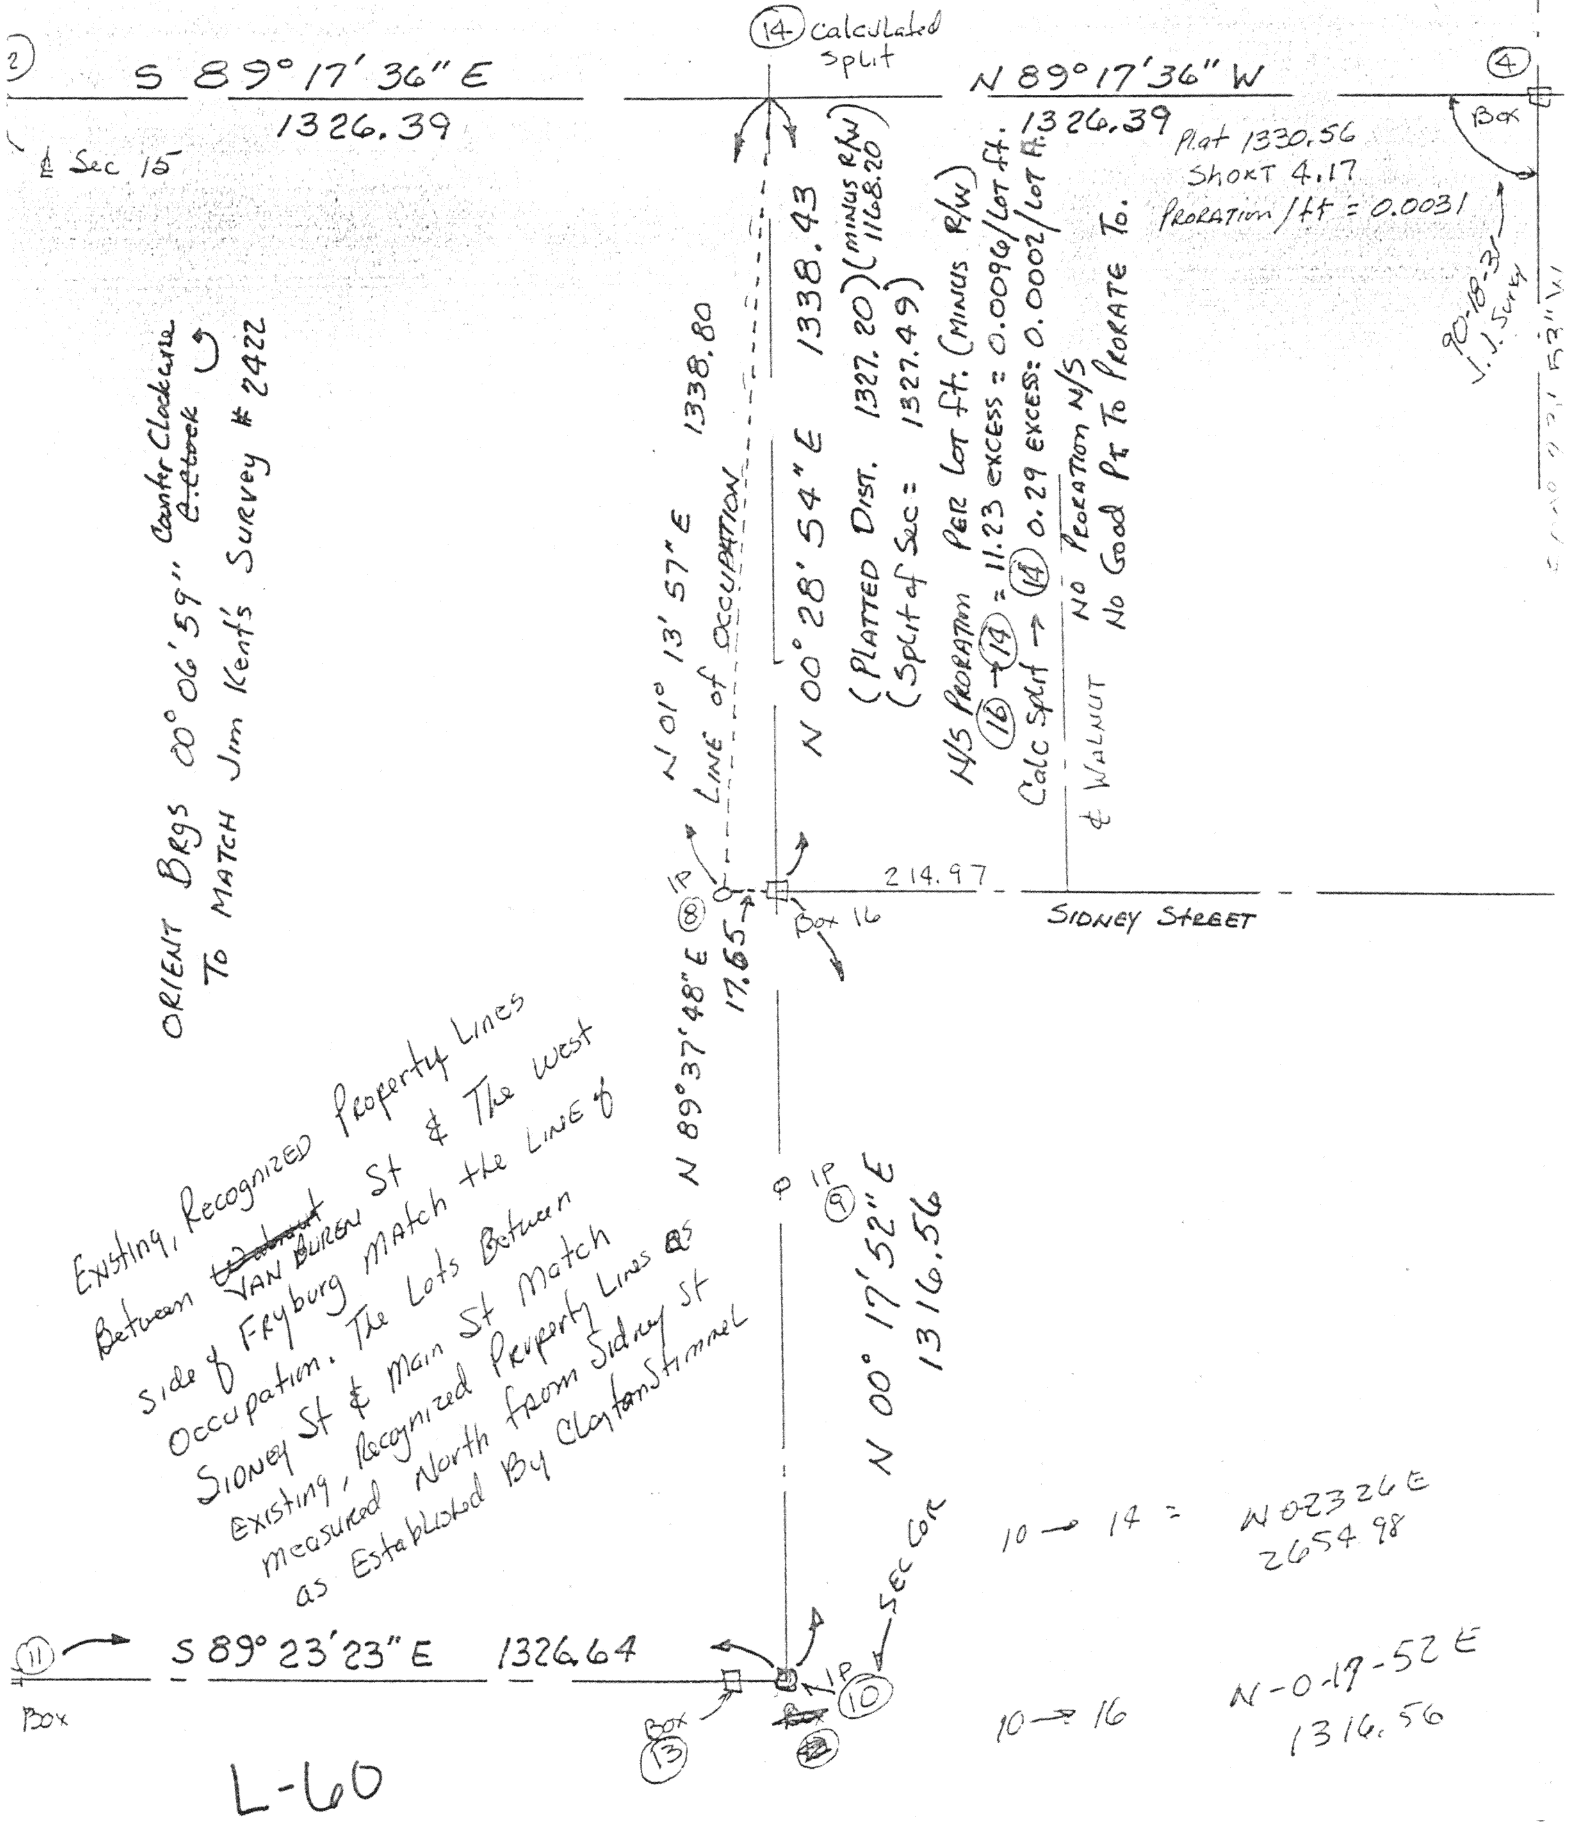 14 Calculated
Split
2
S 89° 17' 36" E
1326.39
N 89° 17' 36" W
1326.39
4
Box
₵ Sec 15
Plat 1330.56
SHORT 4.17
PRORATION / ft = 0.0031
90-18-31
J.J. Survey
ORIENT BRgS 00° 06' 59" Counter Clockwise
TO MATCH Jim Kent's SURVEY # 2422
N 01° 13' 57" E 1338.80
LINE of OCCUPATION
N 00° 28' 54" E 1338.43
(PLATTED DIST. 1327.20) (MINUS R/W)
1168.20
(Split of Sec = 1327.49)
N/S PRORATION PER Lot ft. (MINUS R/W)
16 → 14 = 11.23 EXCESS = 0.0096/LOT ft.
Calc Split → 14 0.29 EXCESS = 0.0002/LOT ft.
NO PRORATION N/S
NO Good Pt TO PRORATE TO.
₵ WALNUT
IP
8
17.65
N 89° 37' 48" E
Box 16
214.97
SIDNEY STREET
Existing, RECOGNIZED PROPERTY LINES
Between VAN BUREN St & The west
side of FRyburg MATCH the LINE of
Occupation. The Lots Between
SIDNEY St & Main St Match
Existing, Recognized Property Lines as
measured North from Sidney St
as Established By Clayton Stimmel
IP
9
N 00° 17' 52" E
1316.56
SEC COR
10 → 14 = N 02326 E
2654 98
11
Box
S 89° 23' 23" E 1326.64
Box
13
IP
10
10 → 16 N-0-17-52 E
1316.56
L-60